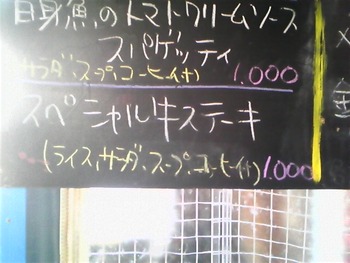 白身魚のトマトクリームソース
スパゲッティ
サラダ、スープ、コーヒー付 1.000
スペシャル牛ステーキ
(ライス、サラダ、スープ、コーヒー付) 1.000